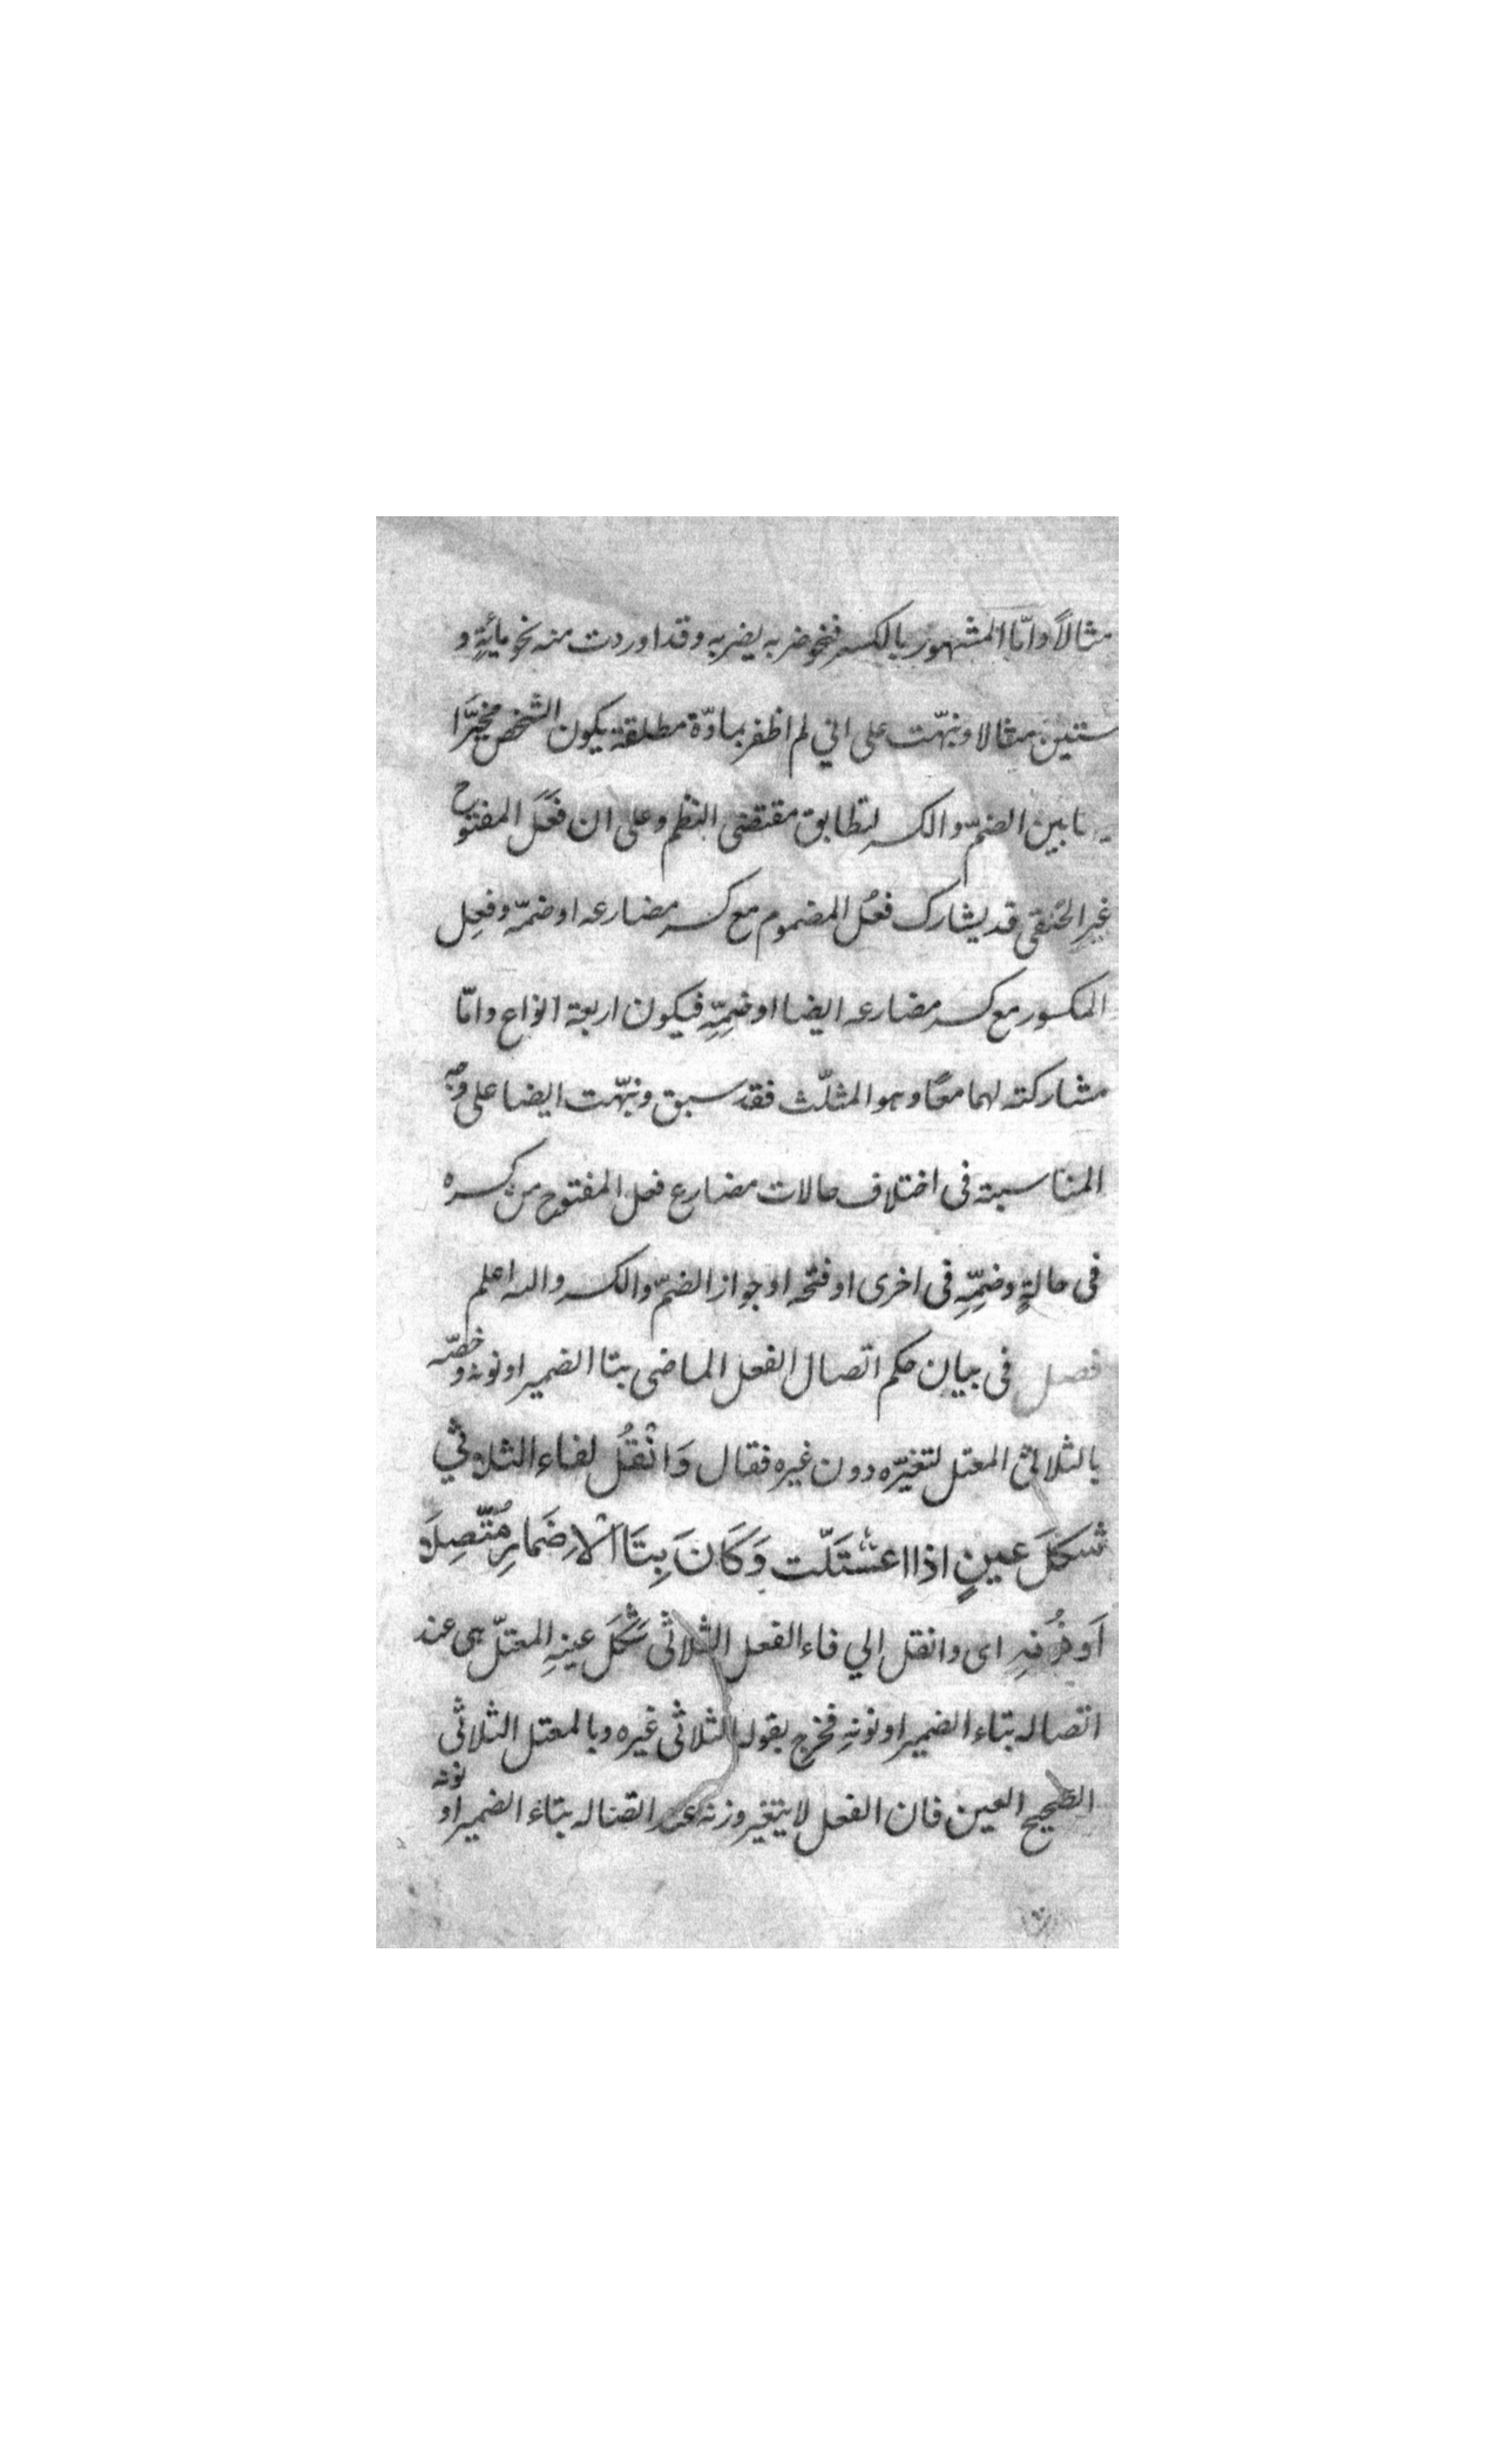 مثالاً وامّا المشهور بالكسر فنحو ضربه يضربه وقد اوردت منه نحو مائةٍ و
ستين مثالا ونبّهت على اني لم اظفر بمادّة مطلقة يكون الشخص مخيّرًا
ما بين الضمّ والكسر لتطابق مقتضى النظم وعلى ان فَعَلَ المفتوح
غير الحلقى قد يشارك فعُل المضموم مع كسر مضارعه او ضمّه وفعِل
المكسور مع كسر مضارعه ايضا او ضمِّهِ فيكون اربعة انواع وامّا
مشاركته لهما معًا وهو المثلّث فقد سبق ونبّهت ايضا على وجه
المناسبة فى اختلاف حالات مضارع فعل المفتوح من كسره
فى حالةٍ وضمِّهِ فى اخرى او فتحه او جواز الضمّ والكسر والله اعلم
فصل فى بيان حكم اتّصال الفعل الماضى بتا الضمير او نونه وخصّه
بالثلاثى المعتل لتغيّره دون غيره فقال وَانْقُل لفاء الثلاثي
شكلَ عينٍ اذا اعتَلّت وَكَانَ بِتَا الْاِضمارِ مُتّصِلَا
اَو نُونِهِ اى وانقل الي فاء الفعل الثلاثى شَكلَ عينِهِ المعتلّ هى عند
اتصاله بتاء الضمير او نونهِ فخرج بقوله الثلاثى غيره وبالمعتل الثلاثى
الصحيح العين فان الفعل لا يتغير وزنه عند اتصاله بتاء الضمير او نونه